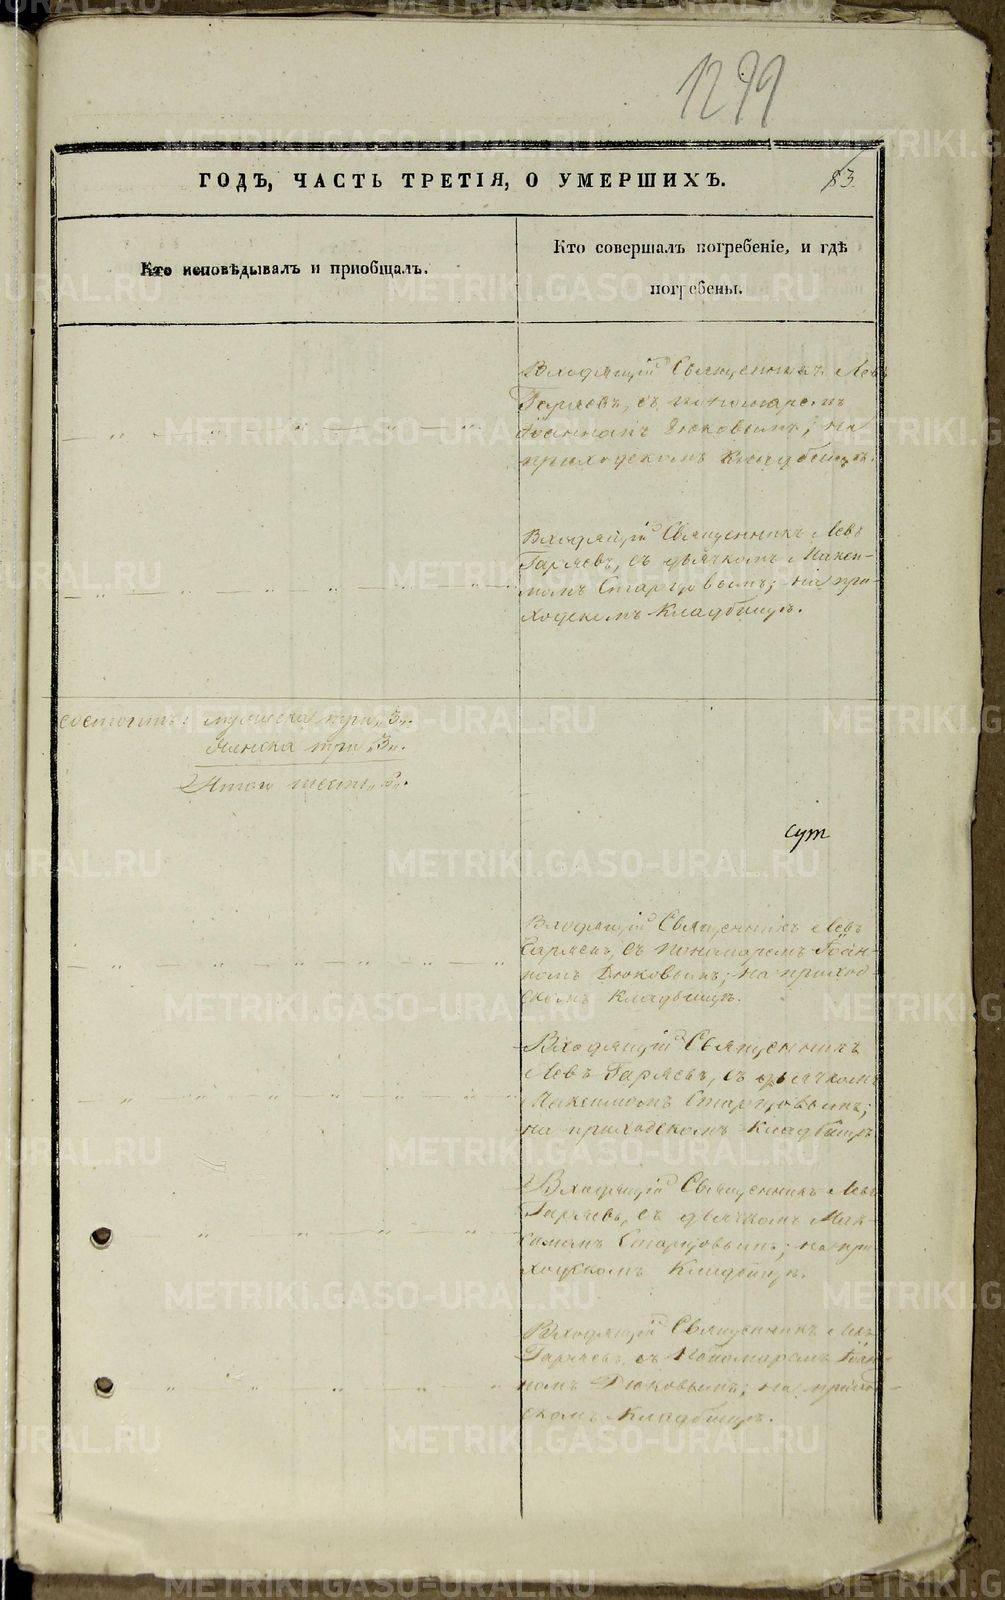 1299
ГОДЪ, ЧАСТЬ ТРЕТІЯ, О УМЕРШИХЪ.
83
Кто исповѣдывалъ и пріобщалъ.
Кто совершалъ погребеніе, и гдѣ
погребены.
Входящій Священникъ Левъ
Гаряевъ, съ пономаремъ
Іоанномъ Дюковымъ; на
приходскомъ Кладбищѣ.
Входящій Священникъ Левъ
Гаряевъ, съ дьячкомъ Макси-
момъ Старцовымъ; на при-
ходскомъ Кладбищѣ.
состоитъ: мужеска три „3„.
Женска три „3„.
Итого шесть „6„.
сут
Входящій Священникъ Левъ
Гаряевъ, съ пономаремъ Іоан-
номъ Дюковымъ; на приход-
скомъ Кладбищѣ.
Входящій Священникъ
Левъ Гаряевъ, съ дьячкомъ
Максимомъ Старцовымъ;
на приходскомъ Кладбищѣ
Входящій Священникъ Левъ
Гаряевъ, съ дьячкомъ Мак-
симомъ Старцовымъ; на при
ходскомъ Кладбищѣ.
Входящій Священникъ Левъ
Гаряевъ, съ Пономаремъ Іоан-
номъ Дюковымъ; на приход-
скомъ Кладбищѣ.
METRIKI.GASO-URAL.RU